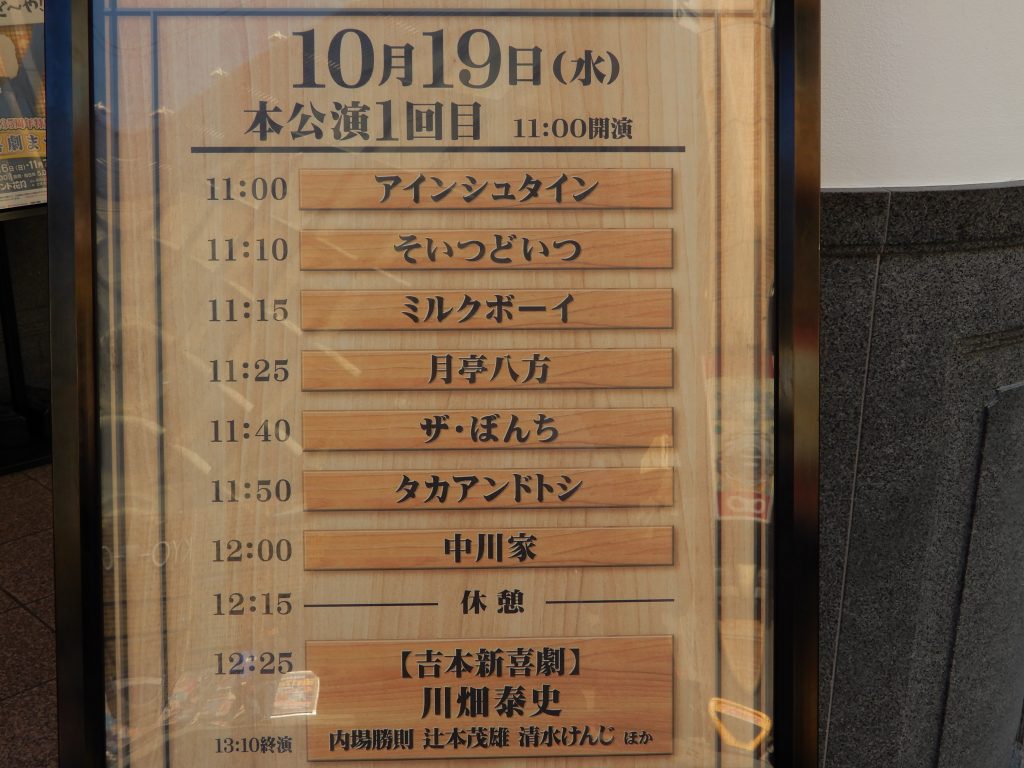 10月19日(水)
本公演1回目 11:00開演
11:00 アインシュタイン
11:10 そいつどいつ
11:15 ミルクボーイ
11:25 月亭八方
11:40 ザ・ぼんち
11:50 タカアンドトシ
12:00 中川家
12:15 休憩
12:25 【吉本新喜劇】
川畑泰史
13:10終演 内場勝則 辻本茂雄 清水けんじ ほか